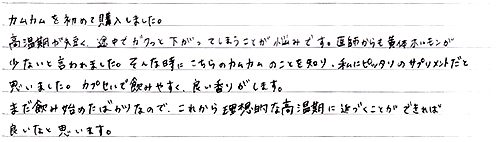 カムカムを初めて購入しました。
高温期が短く、途中でガクッと下がってしまうことが悩みです。医師からも黄体ホルモンが
少ないと言われました。そんな時にこちらのカムカムのことを知り、私にピッタリのサプリメントだと
思いました。カプセルで飲みやすく、良い香りがします。
まだ飲み始めたばかりなので、これから理想的な高温期に近づくことができれば
良いなと思います。